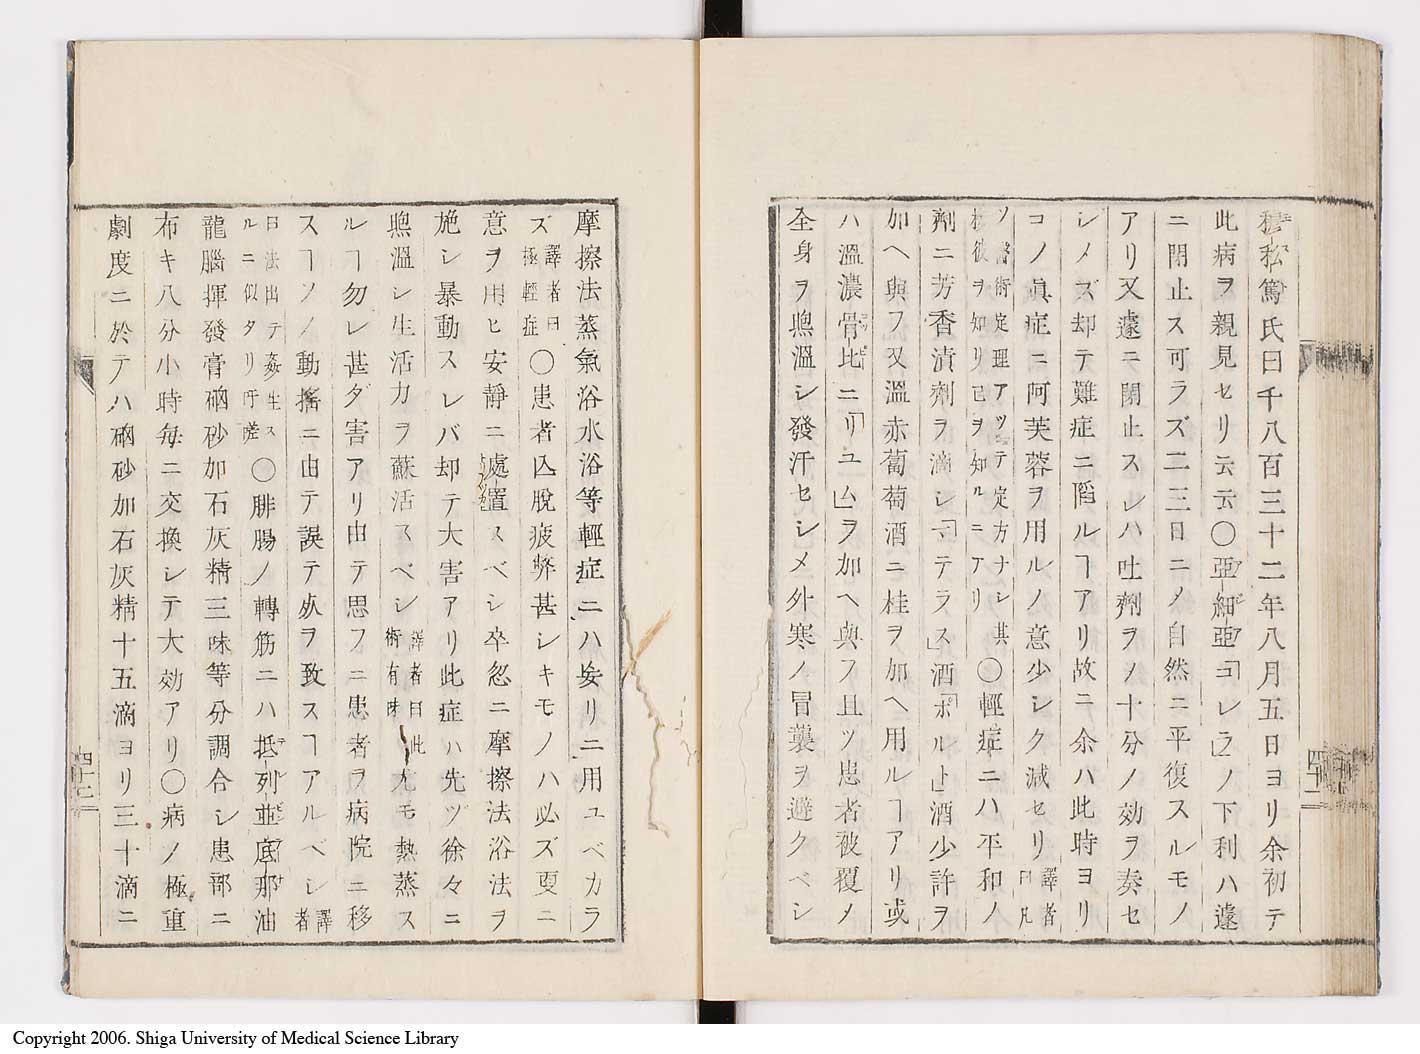 穆私篤氏曰千八百三十二年八月五日ヨリ余初テ
此病ヲ親見セリ云云〇亞細亞「コレラ」ノ下利ハ遽
ニ閉止ス可ラズ二三日ニメ自然ニ平復スルモノ
アリ又遽ニ閉止スレハ吐劑ヲメ十分ノ効ヲ奏セ
シメズ却テ難症ニ陷ルヿアリ故ニ余ハ此時ヨリ
コノ眞症ニ阿芙蓉ヲ用ルノ意少シク減セリ譯者曰凡
ソ醫術定理アツテ定方ナシ其
彼ヲ知リ已ヲ知ルニアリ〇輕症ニハ平和ノ
劑ニ芳香漬劑ヲ滴シ「マテラス」酒「ポルト」酒少許ヲ
加ヘ與フ又溫赤葡萄酒ニ桂ヲ加ヘ用ルヿアリ或
ハ溫濃骨比ニ「リユム」ヲ加ヘ與フ且ツ患者被覆メ
全身ヲ煦溫シ發汗セシメ外寒ノ冒襲ヲ避クベシ
摩擦法蒸氣浴水浴等輕症ニハ妄リニ用ユベカラ
ズ譯者曰極輕症〇患者囚脫疲弊甚シキモノハ必ズ更ニ
意ヲ用ヒ安靜ニ處置スベシ卒忽ニ摩擦法浴法ヲ
施シ暴動スレバ却テ大害アリ此症ハ先ヅ徐々ニ
煦溫シ生活力ヲ蘇活スベシ譯者曰此術有味尤モ熱蒸ス
ルヿ勿レ甚ダ害アリ由テ思フニ患者ヲ病院ニ移
スヿソノ動搖ニ由テ誤テ死ヲ致スヿアルベシ譯者
曰法出テ姦生スルニ似タリ吁嗟〇腓腸ノ轉筋ニハ抵列並底那油
龍腦揮發膏硇砂加石灰精三味等分調合シ患部ニ
布キ八分小時每ニ交換シテ大効アリ〇病ノ極重
劇度ニ於テハ硇砂加石灰精十五滴ヨリ三十滴ニ
四十一
四十二
Copyright 2006. Shiga University of Medical Science Library